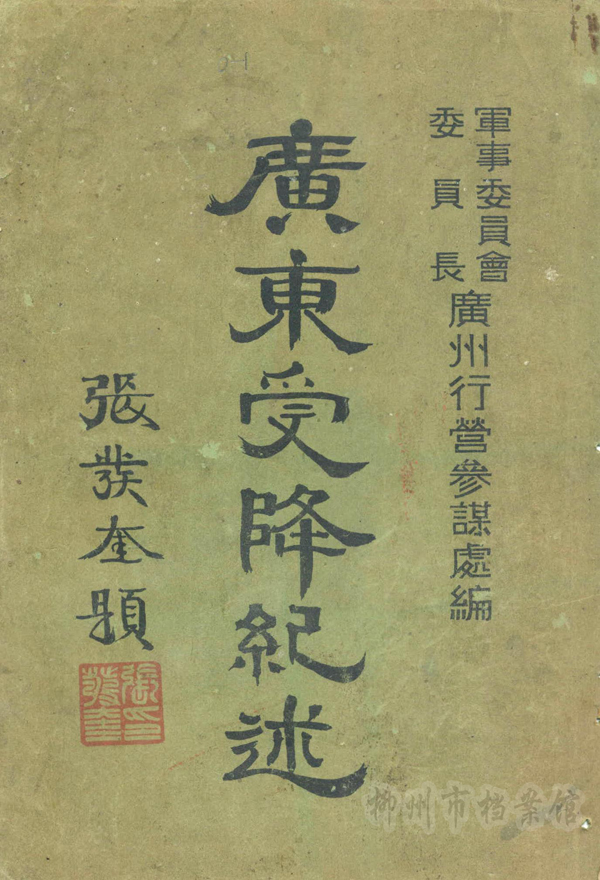 軍事委員會
委員長
廣州行營參謀處編
廣東受降紀述
張發奎題
張發奎印
柳州市档案馆